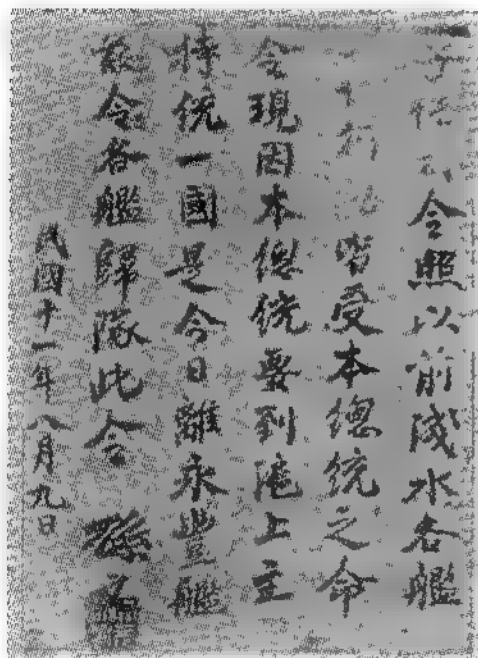 令照以前咸水各艦
皆受本總統之命
令現因本總統要到滬上主
持統一國是今日離永豐艦
茲令各艦歸隊此令 孫文
民國十一年八月九日